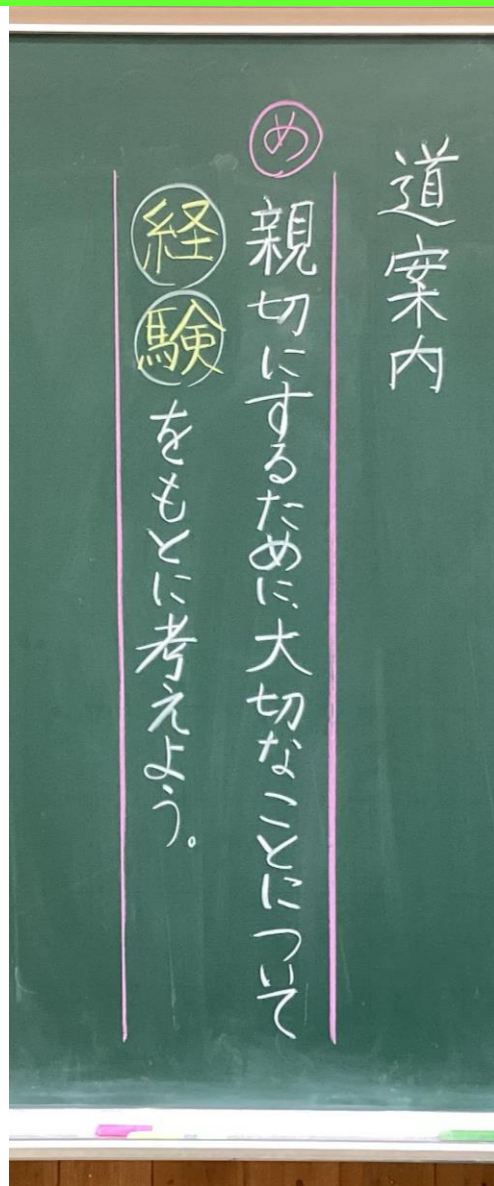 道案内
め 親切にするために、大切なことについて
経験をもとに考えよう。